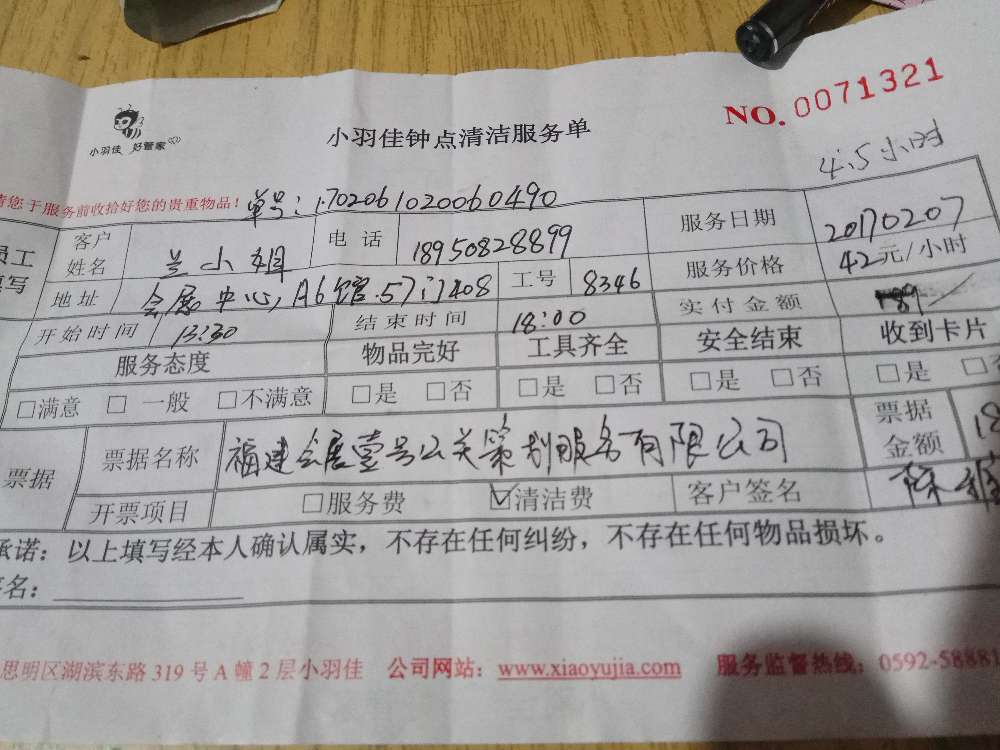 小羽佳 好管家
小羽佳钟点清洁服务单
NO.0071321
4.5小时
请您于服务前收拾好您的贵重物品！单号：1702061020060490
员工填写
客户姓名 兰小姐 电话 18950828899 服务日期 20170207
地址 会展中心，A6馆.57门408 工号 8346 服务价格 42元/小时
开始时间 13:30 结束时间 18:00 实付金额 189
服务态度 物品完好 工具齐全 安全结束 收到卡片
□满意 □一般 □不满意 □是 □否 □是 □否 □是 □否 □是
票据 票据名称 福建会展壹号公关策划服务有限公司 票据金额 18
开票项目 □服务费 ☑清洁费 客户签名
承诺：以上填写经本人确认属实，不存在任何纠纷，不存在任何物品损坏。
签名：
思明区湖滨东路319号A幢2层小羽佳 公司网站：www.xiaoyujia.com 服务监督热线：0592-58881